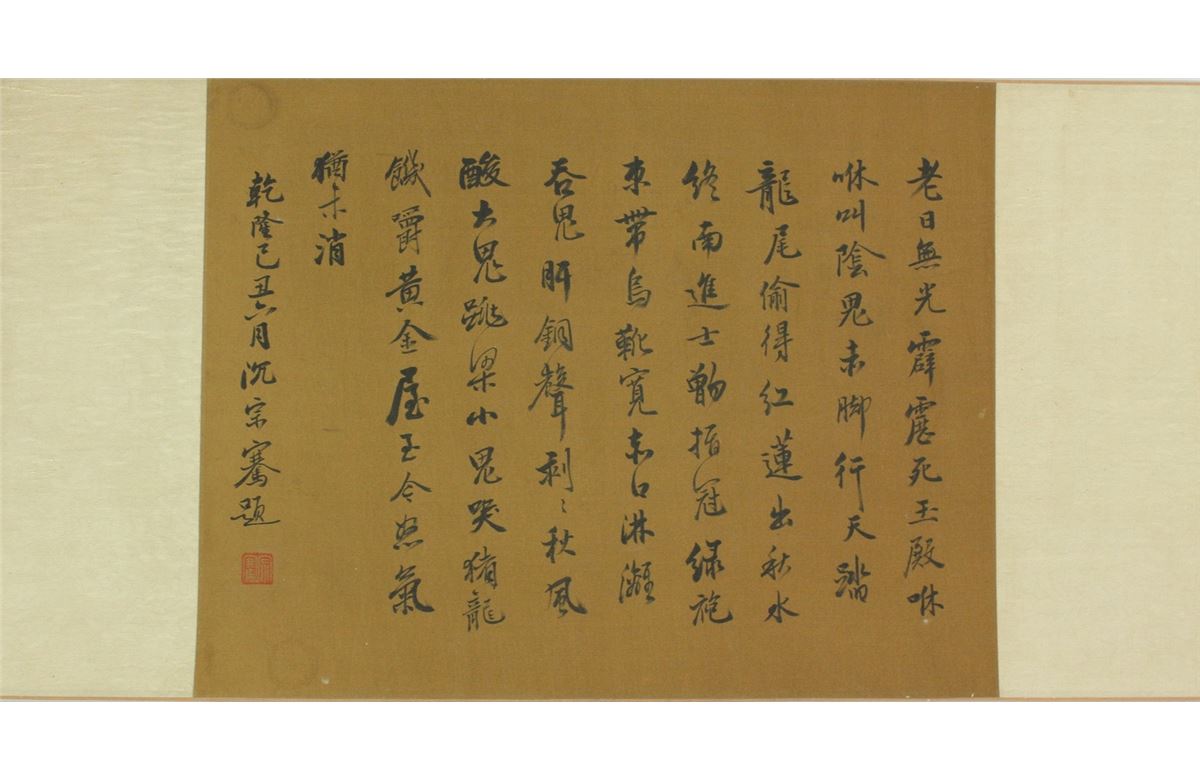 老日無光霹靂死玉殿咻
咻叫陰鬼赤脚行天踏
龍尾偷得紅蓮出秋水
終南進士黝指冠綠袍
束帶烏靴寬赤口淋漓
吞鬼肝銅聲剥〻秋風
酸大鬼跳梁小鬼哭猪龍
饑嚼黃金屋至今怒氣
猶未消
乾隆己丑六月沈宗騫題